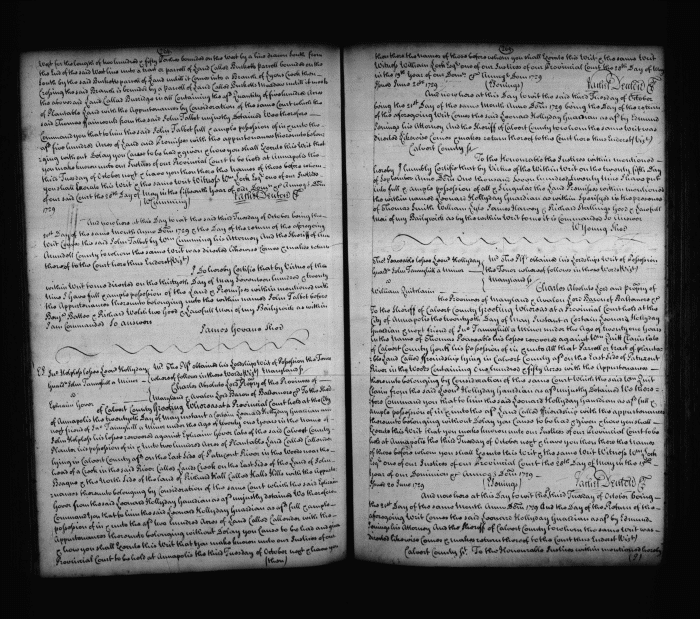 West for the length of two hundred & fifty Perches bounded on the West by a line drawn South from
the End of the said West line into a Tract a parcell of Land Called
South by the said parcell of Land until it come into a Branch of Lyons Creek then
the said Branch is bounded parcell of Land called Maddox until it
the aforesaid Land Called Containing the af.d Quantity of five hundred Acres
of Plantable Land with the Appurtenances by Consideration of the same Court which the
said from the said John Talbot unjustly detained Was therefore
Command you that to him the said John Talbot full & ample possession of in & unto the
af.d five hundred Acres of Land and Premises with the Appurtenances thereunto belon
ging without delay you cause to be had & given & how you shall Execute this Writ that
you make known unto our Justices of our Provincial Court to be held at Annapolis the
third Tuesday of October next & have you then there the Names of those before whom
you shall Execute this Writ & the same Writ Witness W.m Lock Esq.r one of our Justices
of our said Court the 20th Day of May in the fifteenth Year of our Dom.n &c Annoq.e Dom
1729
W Cumming
Vachel Denton C
And now here at this Day to wit the said third Tuesday of October being the
21st Day of the same Month Anno Dom 1729 & the Day of the return of the aforegoing
Writ Comes the said John Talbot by W.m Cumming his Attorney And the Sheriff of Ann
Arundell County to whom the same Writ was directed likewise Comes & makes return
thereof to the Court here thus Indorst Viz.t
I do hereby Certifie that by Virtue of the
within Writ to me directed on the thirtyeth Day of May Seventeen hundred & twenty
nine I have full & ample possession of the Land & Premises within mentioned with
the Appurtenances thereunto belonging unto the within named John Talbot before
Benj.a & Richard Welsh two Good & Lawfull Men of my Bailywick as within
I am Commanded To answer
James Govane Sher
Jn.o lessee Leon.d Hollyday
Guard.n John Tannyhill a Minor
v
Ephraim Gover
W.ch The Pl.t obtains his Lordships Writ of Possession the Tenor
whereof follows in these Words Viz.t Maryland ss
Charles Absolute Lord Propry of the Provinces of
Maryland & Avalon Lord Baron of Baltemore &c To the Sher
of Calvert County Greeting Whereas at a Provincial Court held at the City
of Annapolis the twentyeth Day of May instant a Certain Leonard Hollyday Guardian and
next friend of Jn.o Tannyhill a Minor under the Age of twenty one Years in the Name of
John his lessee recovered against Ephraim Gover late of the said Calvert County
Planter his possession of in & unto two hundred Acres of Plantable Land called
lying in Calvert County af.d on the East side of Patuxent River in the Woods near the
head of a Creek in the said River called Creek on the East side of the Land of John
Boague & the North side of the Land of Richard Hall called Halls Hills with the Appurte
nances thereunto belonging by Consideration of the same Court which the said Ephraim
Gover from the said Leonard Hollyday Guardian as af.d unjustly detained We therefore
Command you that to him the said Leonard Hollyday Guardian as af.d full & ample
possession of in & unto the af.d two hundred Acres of Land Called with the
Appurtenances thereunto belonging without Delay you Cause to be had and given
& how you shall Execute this Writ that you make known unto our Justices of our
Provincial Court to be held at Annapolis the third Tuesday of October next & have you
(then)
then there the Names of those before whom you shall Execute this & the same Writ
Witness William Lock Esq.r one of our Justices of our Provincial Court the 20th Day of May
in the 15th Year of our Dom.n &c Annoq.e Dom 1729
Issued June 20th 1729
Vachel Denton C
And now here at this Day to wit the said third Tuesday of October
being the 21st Day of the same Month Anno Dom 1729 being the Day of the return
of the aforegoing Writ Comes the said Leonard Hollyday Guardian as af.d by Edmund
Jenings his Attorney And the Sheriff of Calvert County to whom the same Writ was
directed likewise Comes & makes return thereof to the Court here thus Indorst Viz.t
Calvert County ss
To the Honourable the Justices within mentioned
hereby I humbly Certifie that by Virtue of the Within Writ on the twenty fifth Day
of September Anno Dom One thousand Seven hundred twenty nine I have put
into full & ample possession of all & Singular the Land & Premises within mentioned
the within named Leonard Hollyday Guardian as within Specified in the presence
of Thomas Smith William Lyles James Harvey & Richard Stallings Good & Lawfull
Men of my Bailywick as by the within Writ to me it is commanded To answer
W Young Sher
Thos lessee Leon.d Hollyday
Guard.n John Tannyhill a Minor
v
William
W.ch The Pl.t obtains his Lordships Writ of Possession
the Tenor whereof follows in these Words Viz.t
Maryland ss
Charles Absolute Lord and Propry of
the Provinces of Maryland & Avalon Lord Baron of Baltemore &c
To the Sheriff of Calvert County Greeting Whereas at a Provincial Court held at the
City of Annapolis the twentyeth Day of May Instant a Certain Leonard Hollyday
Guardian & next friend of Jn.o Tannyhill a Minor under the Age of twenty one Years
in the Name of Thomas his lessee recovered against W.m late
of Calvert County his possession of in & unto all that Parcell or tract of plantable
Land Called Friendship lying in Calvert County af.d on the East Side of Patuxent
River in the Woods containing One hundred & fifty Acres with the Appurtenances
thereunto belonging by Consideration of the same Court which the said W.m
from the said Leonard Hollyday Guardian as af.d unjustly detained We there
fore Command you that to him the said Leonard Hollyday Guardian as af.d full &
ample possession of in & unto the af.d Land Called Friendship with the appurtenances
thereunto belonging without Delay you Cause to be had & given & how you shall Ex
ecute this Writ that you make known unto our Justices of our Provincial Court to be
held at Annapolis the third Tuesday of October next & have you then there the Names
of those before whom you shall Execute this & the same Writ Witness W.m Lock
Esq.r one of our Justices of our Provincial Court the 20th Day of May in the 15th
year of our Dominion &c Annoq.e Dom 1729
Issued 20 June 1729
Jenings
Vachel Denton C
And now here at this Day to wit the third Tuesday of October being
the 21st Day of the same Month Anno Dom 1729 And the Day of the Return of the
aforegoing Writ Comes the said Leonard Hollyday Guardian as af.d by Edmund
Jenings his Attorney And the Sheriff of Calvert County to whom the same Writ was
directed likewise Comes & makes return thereof to the Court here thus Indorst Viz.t
Calvert County ss To the Honourable the Justices within mentioned hereby